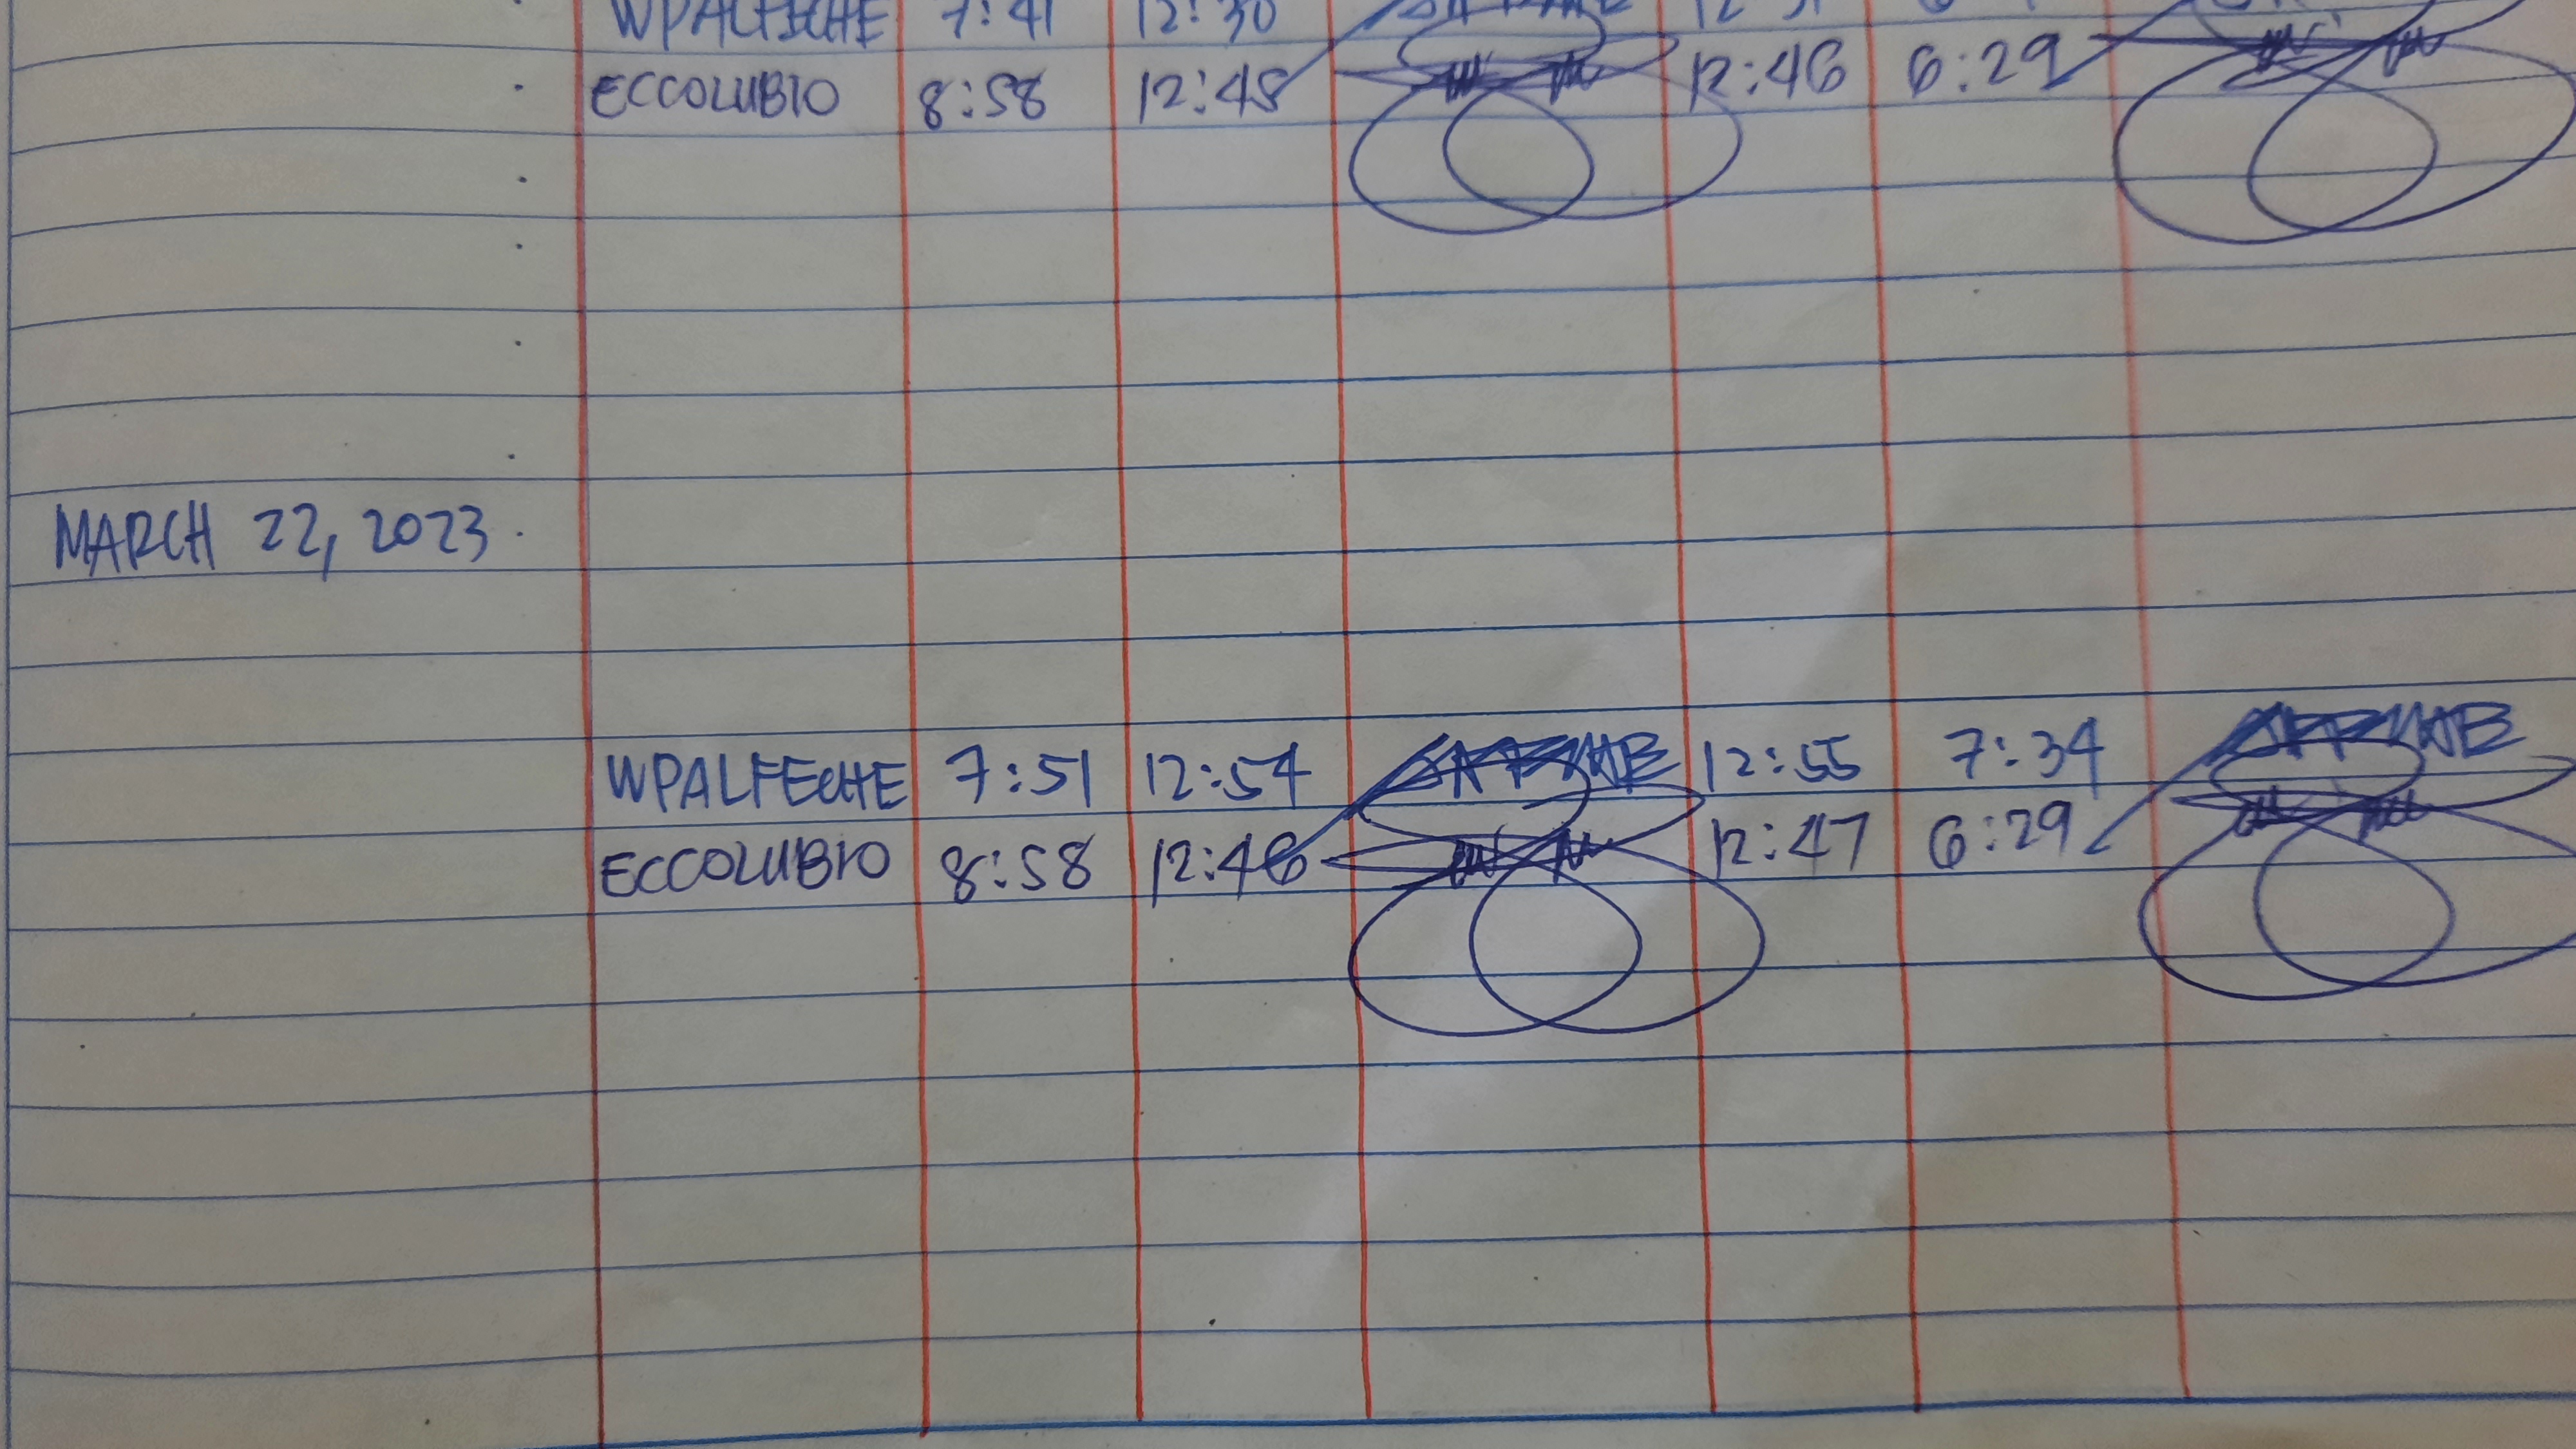 WPALFECHE 7:41 12:30
ECCOLUBIO 8:58 12:45 12:46 6:29
MARCH 22, 2023.
WPALFECHE 7:51 12:54 12:55 7:34
ECCOLUBIO 8:58 12:46 12:47 6:29